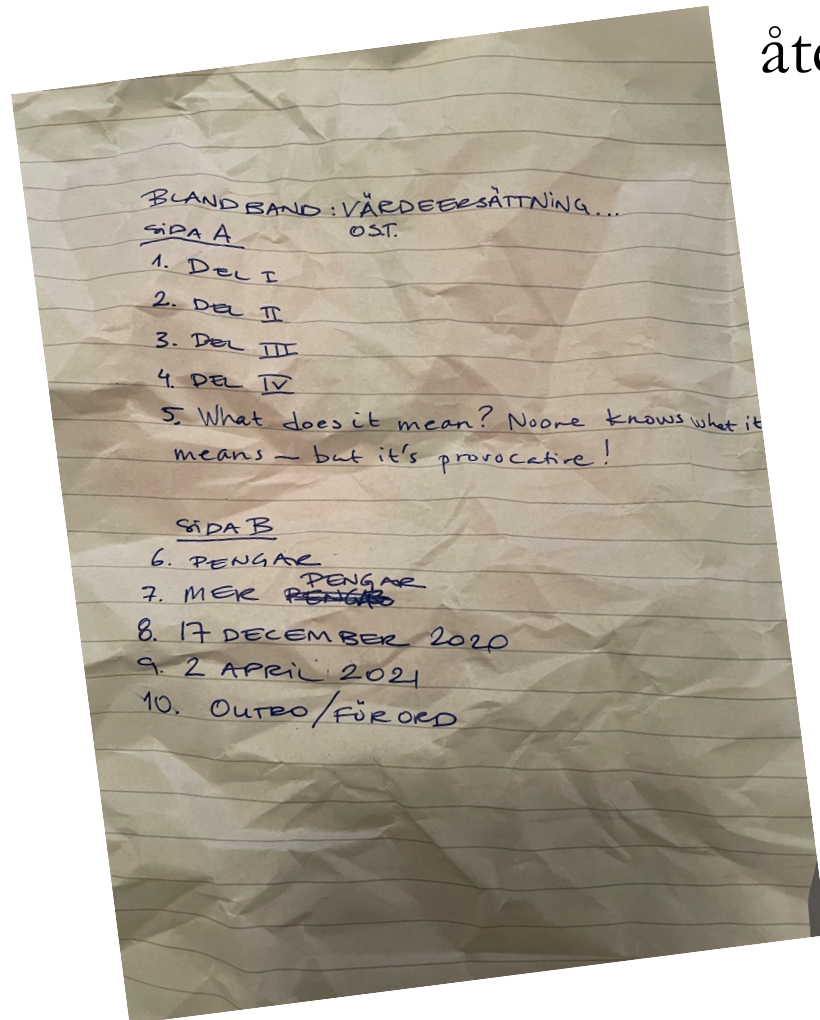 åte
BLANDBAND: VÄRDEERSÄTTNING...
SIDA A OST.
1. DEL I
2. DEL II
3. DEL III
4. DEL IV
5. What does it mean? Noone knows what it
means – but it's provocative!
SIDA B
6. PENGAR
7. MER PENGAR
8. 17 DECEMBER 2020
9. 2 APRIL 2021
10. OUTRO/FÖRORD